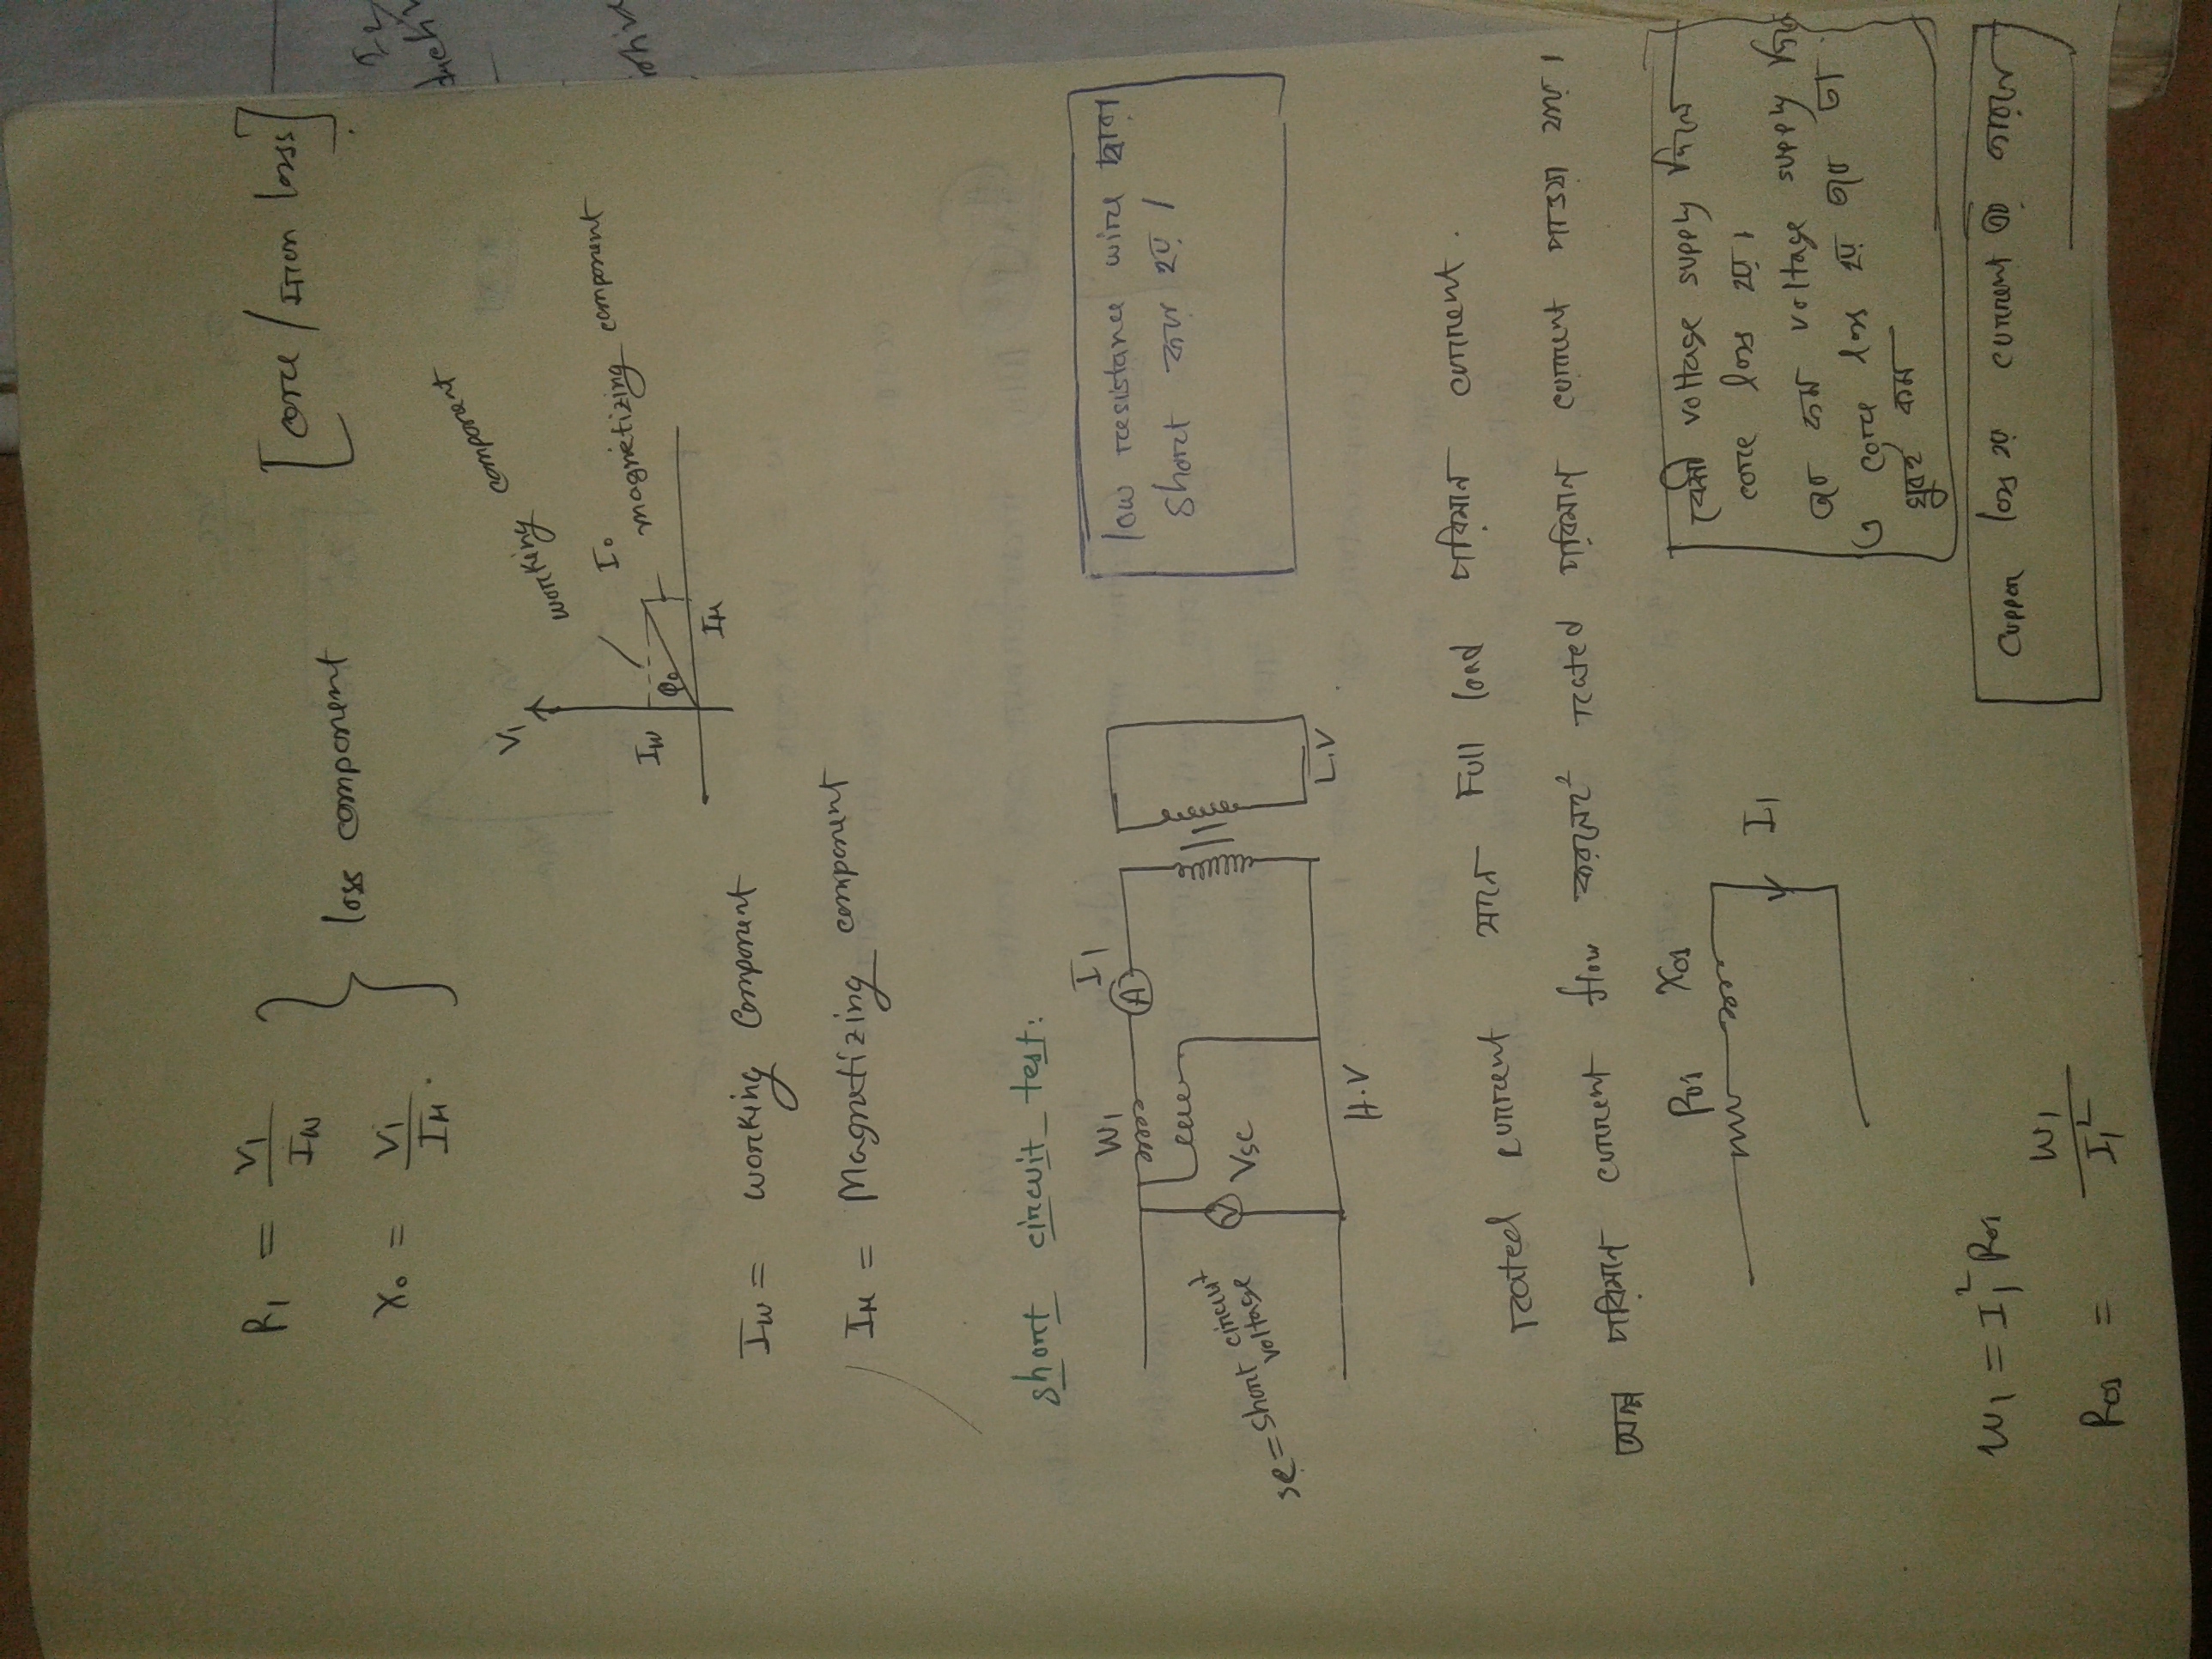 R₁ = V₁ / I_W
X₀ = V₁ / I_μ
} loss component
[core / iron loss]
V₁
working component
I₀
magnetizing component
I_W
φ₀
I_μ
I_W = working component
I_μ = Magnetizing component
short circuit test:
W₁
I₁
A
V
V_SC
SC = short circuit voltage
H.V
L.V
low resistance wire দ্বারা
short করা হয়।
rated current মানে Full load পরিমান current.
অল্প পরিমান current flow করলেই rated পরিমান current পাওয়া যায়।
R₀₁ X₀₁
I₁
বেশী voltage supply দিলে
core loss হয়।
তবে কম voltage supply দিলে
ও core loss হয় তবে তা
খুবই কম
W₁ = I₁² R₀₁
R₀₁ = W₁ / I₁²
Cupper loss হয় current এর কারনে